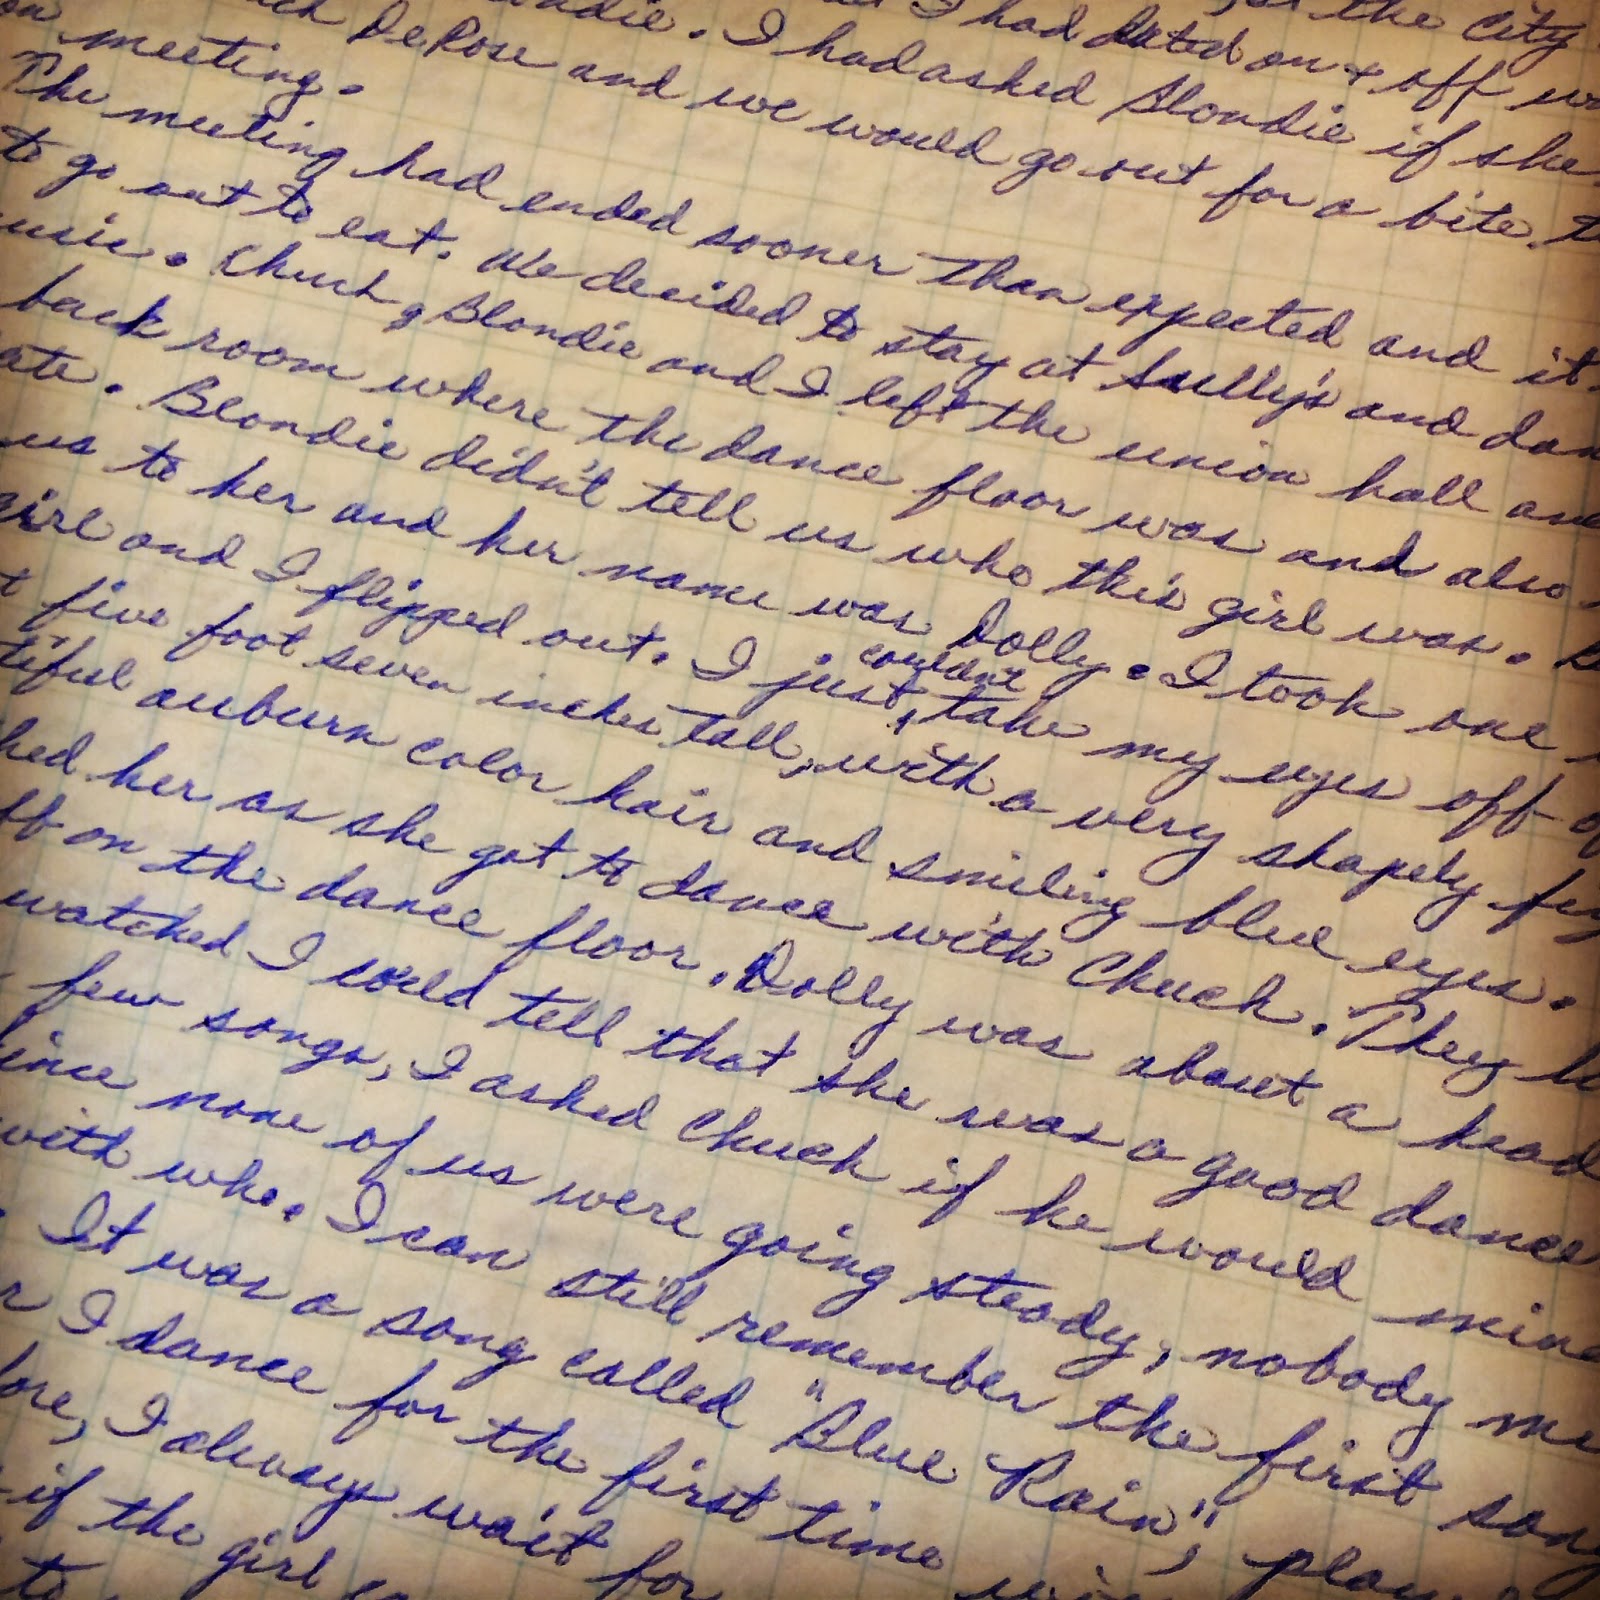 I had dated on & off
the City
on Blondie. I had asked Blondie if she
meeting. DePose and we would go out for a bite.
The meeting had ended sooner than expected and it
to go out to eat. We decided to stay at Sully's and dan
usic. Chuck, Blondie and I left the union hall and
back room where the dance floor was and also
ate. Blondie didn't tell us who this girl was.
us to her and her name was Dolly. I took one
girl and I flipped out. I just couldn't take my eyes off of
t five foot seven inches tall, with a very shapely fig
tiful auburn color hair and smiling blue eyes.
hed her as she got to dance with Chuck. They lo
ff on the dance floor. Dolly was about a head
watched I could tell that she was a good dancer
few songs, I asked Chuck if he would mind
ince none of us were going steady, nobody mi
with who. I can still remember the first song
It was a song called "Blue Rain", play
r I dance for the first time wi
fore, I always wait for
if the girl
to